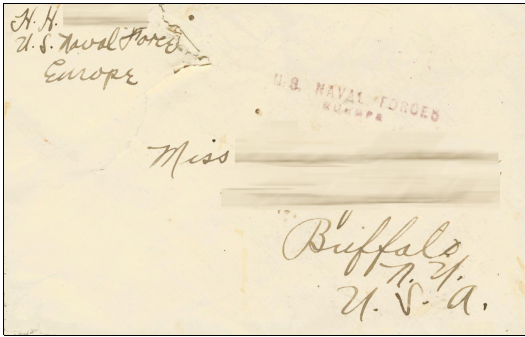 H. H.
U. S. Naval Force
Europe
U. S. NAVAL FORCES
EUROPE
Miss
Buffalo
N. Y.
U. S. A.